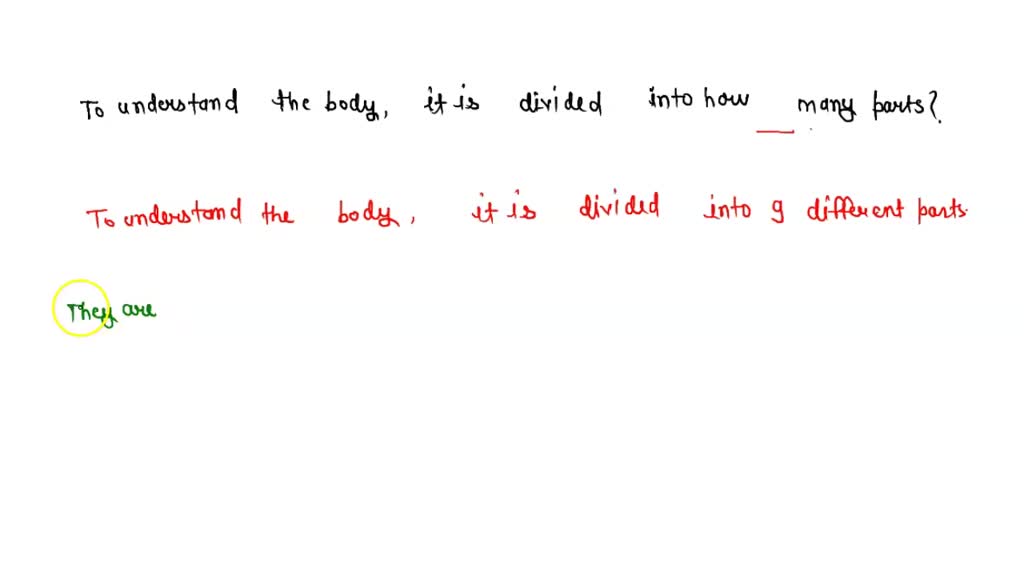 To understand the body, it is divided into how many parts?
To understand the body, it is divided into 9 different parts.
They are